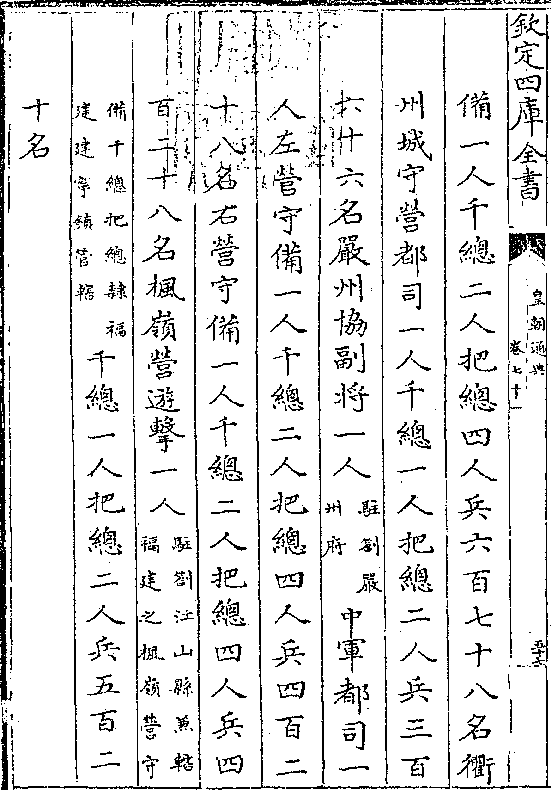 欽定四庫全書
皇朝通典
卷七十
備一人千總二人把總四人兵六百七十八名衢
州城守營都司一人千總一人把總二人兵三百
六十六名嚴州協副將一人駐劄嚴州府中軍都司一
人左營守備一人千總二人把總四人兵四百二
十八名右營守備一人千總二人把總四人兵四
百二十八名楓嶺營遊擊一人駐劄江山縣兼轄福建之楓嶺營守
備千總把總隸福建建寧鎮營轄千總一人把總二人兵五百二
十名